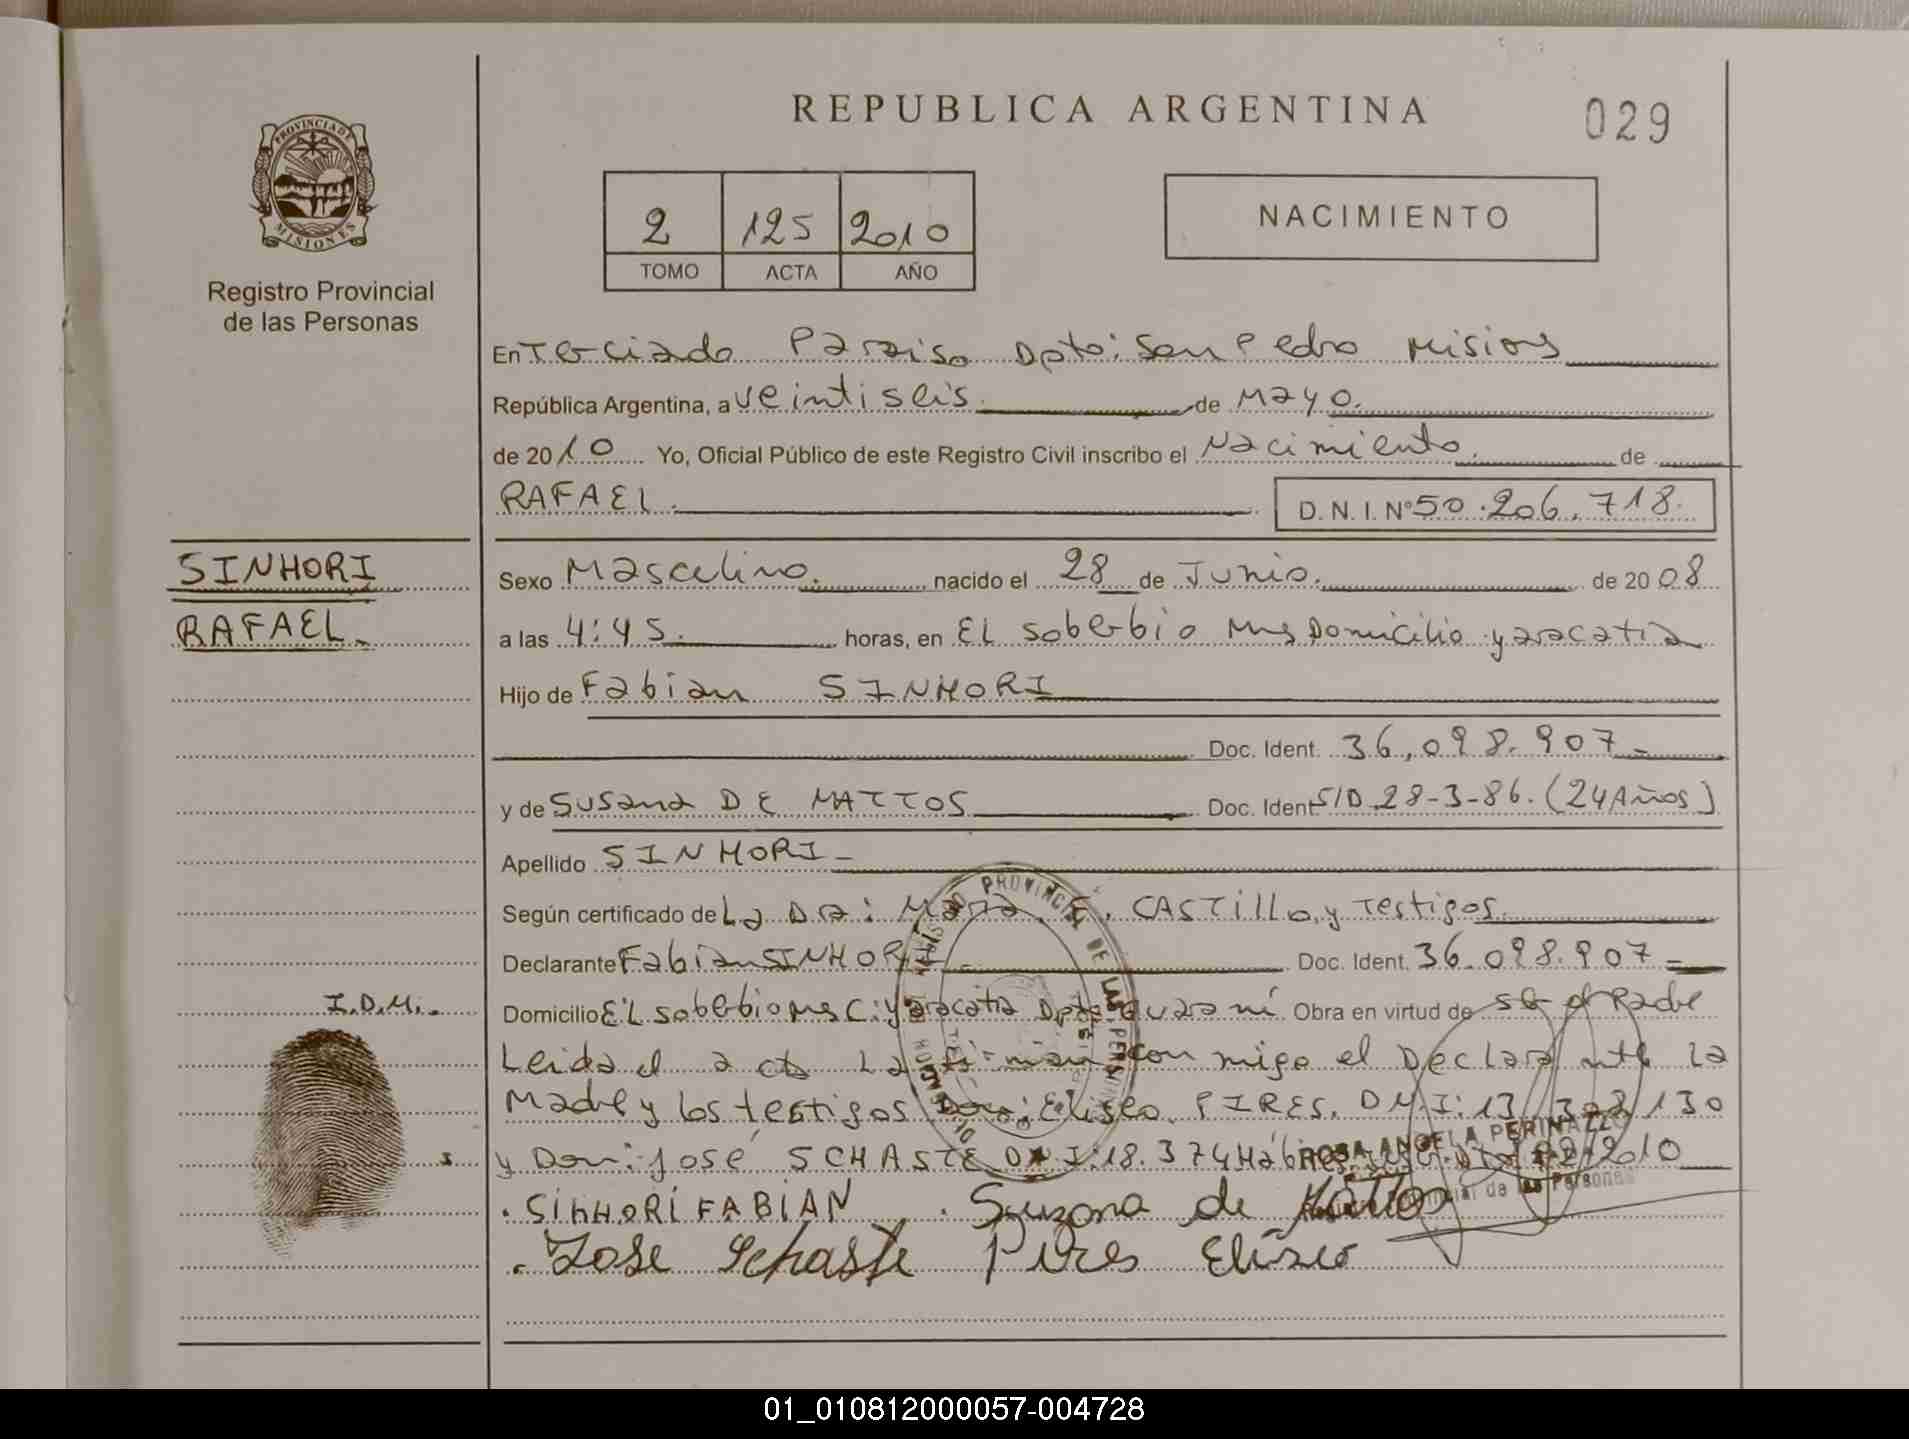 REPUBLICA ARGENTINA
029
PROVINCIA DE
MISIONES
Registro Provincial
de las Personas
2 125 2010
TOMO ACTA AÑO
NACIMIENTO
En Terciado Paraiso Dpto: San Pedro Misiones
República Argentina, a veintiseis. de Mayo.
de 2010 Yo, Oficial Público de este Registro Civil inscribo el Nacimiento. de
RAFAEL. D. N. I. Nº 50.206.718.
SINHORI
RAFAEL.-
Sexo Masculino. nacido el 28 de Junio. de 2008
a las 4:45. horas, en EL Soberbio Mns Domicilio yaracatia
Hijo de Fabian SINHORI
Doc. Ident. 36.098.907-
y de Susana DE MATTOS Doc. Ident. S/D 28-3-86. (24 Años)
Apellido SINHORI-
Según certificado de La Dra: Maria E. CASTILLO y Testigos.
Declarante Fabian SINHORI- Doc. Ident. 36.098.907-
Domicilio EL Soberbio Mns C: yaracatia Dpto Guarani Obra en virtud de ser el Padre
I.D.M.
Leida el acta La firman con migo el Declarante La
Madre y los testigos Don: Eliseo PIRES. D.N.I: 13
y Don: José SCHASTE DNI: 18.374 2010
ROSA ANGELA PERINAZZO
de las Personas
. SINHORI FABIAN . Suzana de Mattos
. Jose Schaste Pires Eliseo
01_010812000057-004728